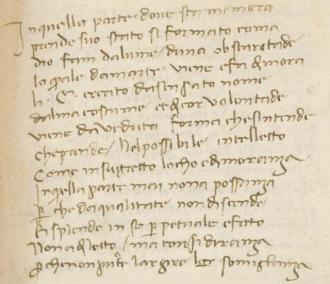 In quella parte dove sta memora
prende suo stato si formato coma
dia fam dalume / duna obscuritade
la quale damarte viene e fa dimora
li. E creato da sensato nome
dalma costume et di cor volontade
viene da veduta forma che sintende
che prende / Nel possibile intelletto
Come in subgetto locho e dimoranza
In quella parte mai non a possanza
Per che da qualitate non disende
Risplende in se perpetuale effeto
Non a diletto / ma considiranza
Si che non puote largire simiglianza